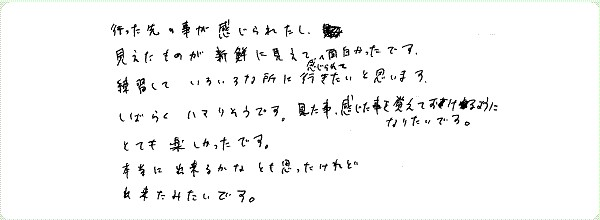 行った先の事が感じられたし、
見えたものが新鮮に見えて、面白かったです。
練習していろいろな所に感じられて行きたいと思います。
しばらくハマりそうです。見た事、感じた事を覚えて
なりたいです。
とても楽しかったです。
本当に出来るかなとも思ったけれど
出来たみたいです。